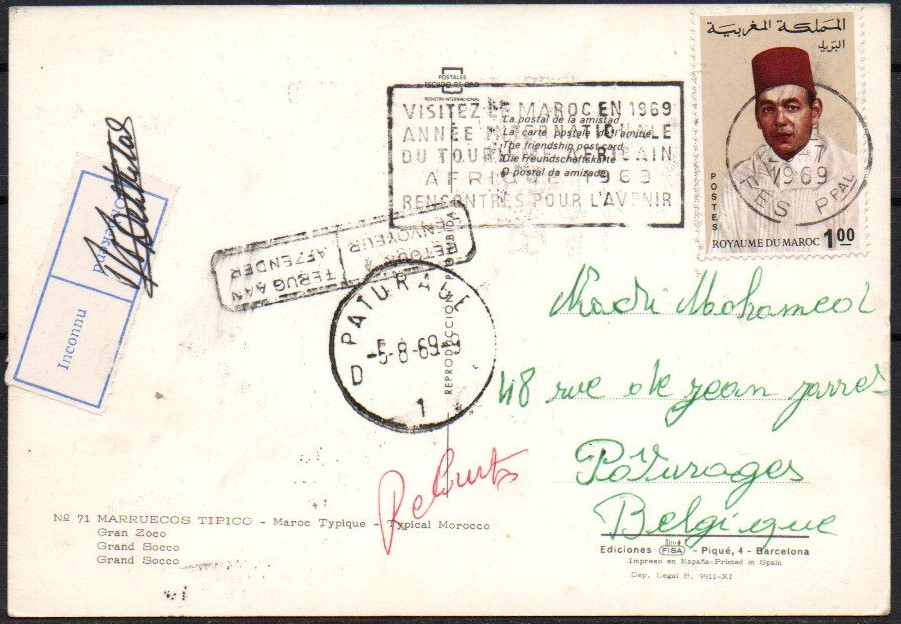 المملكة المغربية
البريد
POSTES
ROYAUME DU MAROC 1.00
1969
FES PPAL
POSTALES
ESCUDO DE ORO
REGISTRO INTERNACIONAL
VISITEZ LE MAROC EN 1969
ANNÉE INTERNATIONALE
DU TOURISME AFRICAIN
AFRIQUE 1969
RENCONTRES POUR L'AVENIR
La postal de la amistad
La carte postale de l'amitié
The friendship post card
Die Freundschaftskarte
O postal da amizade
Inconnu
RETOUR A
L'ENVOYEUR
TERUG AAN
AFZENDER
PATURAGE
D
-5-8-69-9
1
REPRODUCCION PROHIBIDA
Kadri Mohamed
48 rue de jean jarres
Paturages
Belgique
Rebuts
Nº 71 MARRUECOS TIPICO - Maroc Typique - Typical Morocco
Gran Zoco
Grand Socco
Grand Socco
Ediciones FISA - Piqué, 4 - Barcelona
Impreso en España-Printed in Spain
Dep. Legal B. 9911-XI